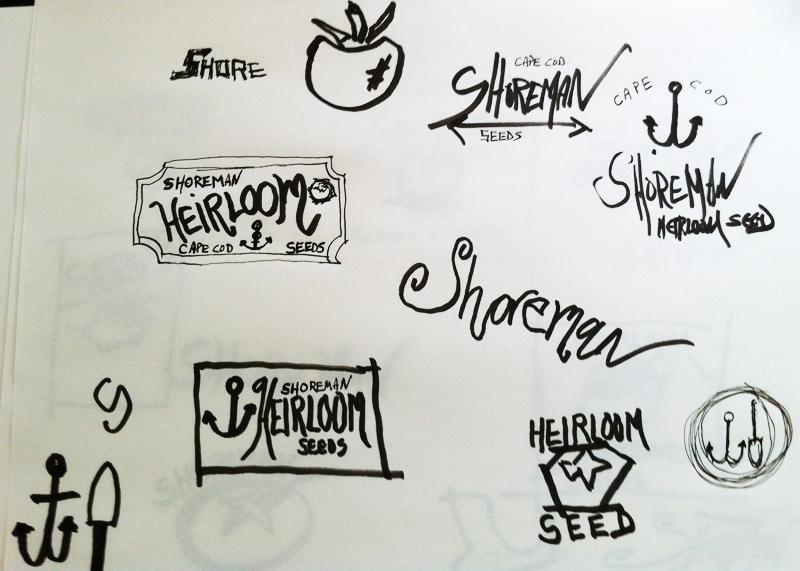 SHORE
CAPE COD
SHOREMAN
SEEDS
CAPE COD
SHOREMAN
HEIRLOOM SEED
SHOREMAN
HEIRLOOM
CAPE COD SEEDS
Shoreman
S
SHOREMAN
HEIRLOOM
SEEDS
HEIRLOOM
SEED